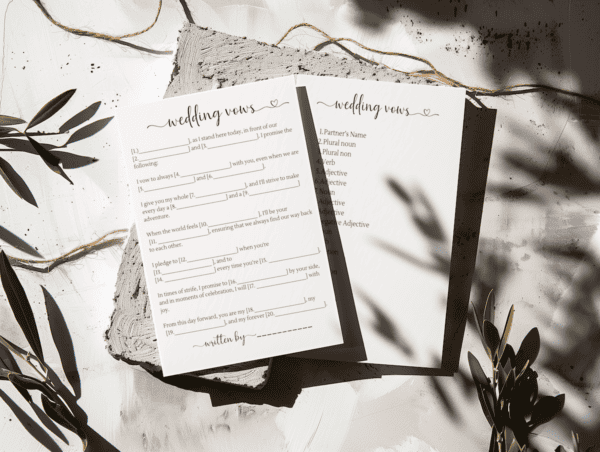 wedding vows
[1.]______________], as I stand here today, in front of our
[2.______________] and [3.______________], I promise the
following:
I vow to always [4.______________] with you, even when we are
[5.______________] and [6.______________].
I give you my whole [7.______________], and I'll strive to make
every day a [8.______________] and a [9.______________]
adventure.
When the world feels [10.______________], I'll be your
[11.______________], ensuring that we always find our way back
to each other.
I pledge to [12.______________] when you're
[13.______________], and to
[14.______________] every time you're [15.______________].
In times of strife, I promise to [16.______________] by your side,
and in moments of celebration, I will [17.______________] with
joy.
From this day forward, you are my [18.______________], my
[19.______________], and my forever [20.______________].
written by
wedding vows
1.Partner's Name
2.Plural noun
Plural non
Verb
Adjective
Adjective
Noun
Adjective
Adjective
Adjective